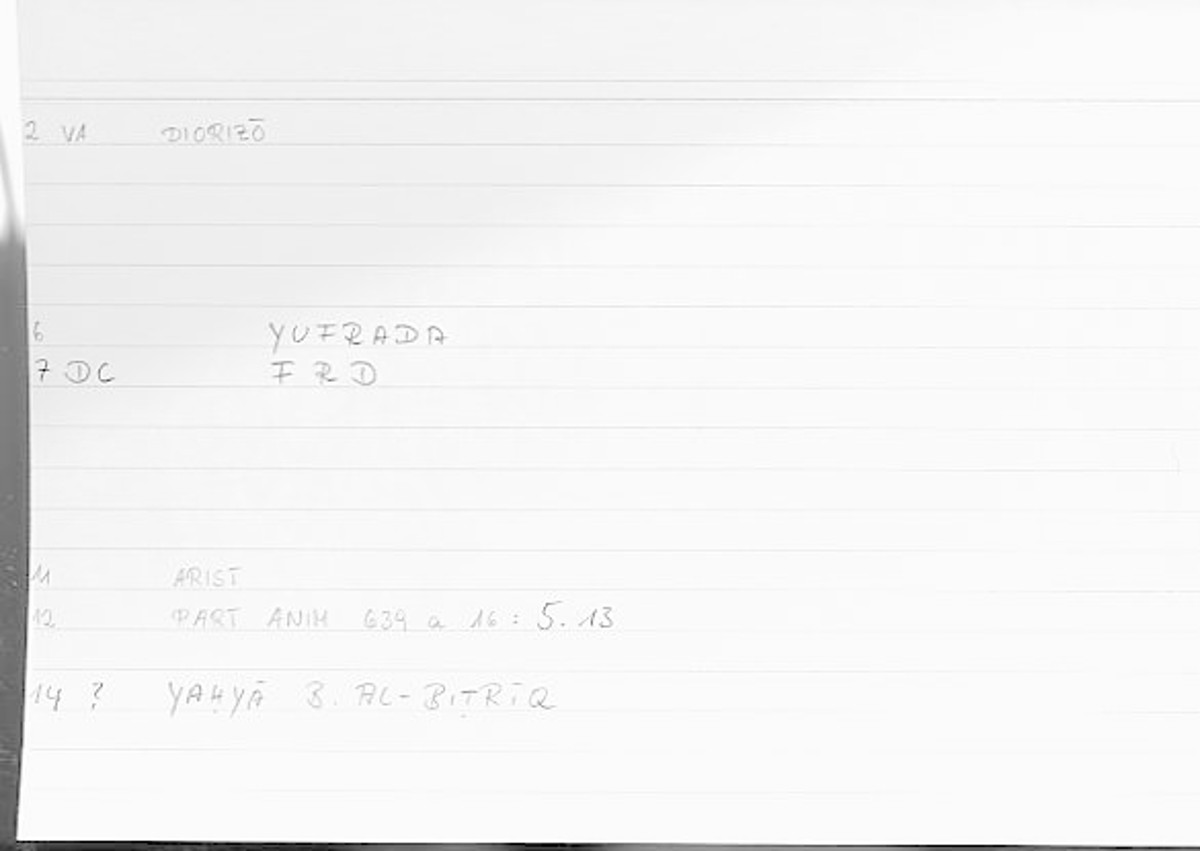 2 VA DIORIZŌ
6 YUFRADA
7 DC F R D
11 ARIST
12 PART ANIM 639 a 16 : 5. 13
14 ? YAḤYĀ B. AL-BIṬRĪQ